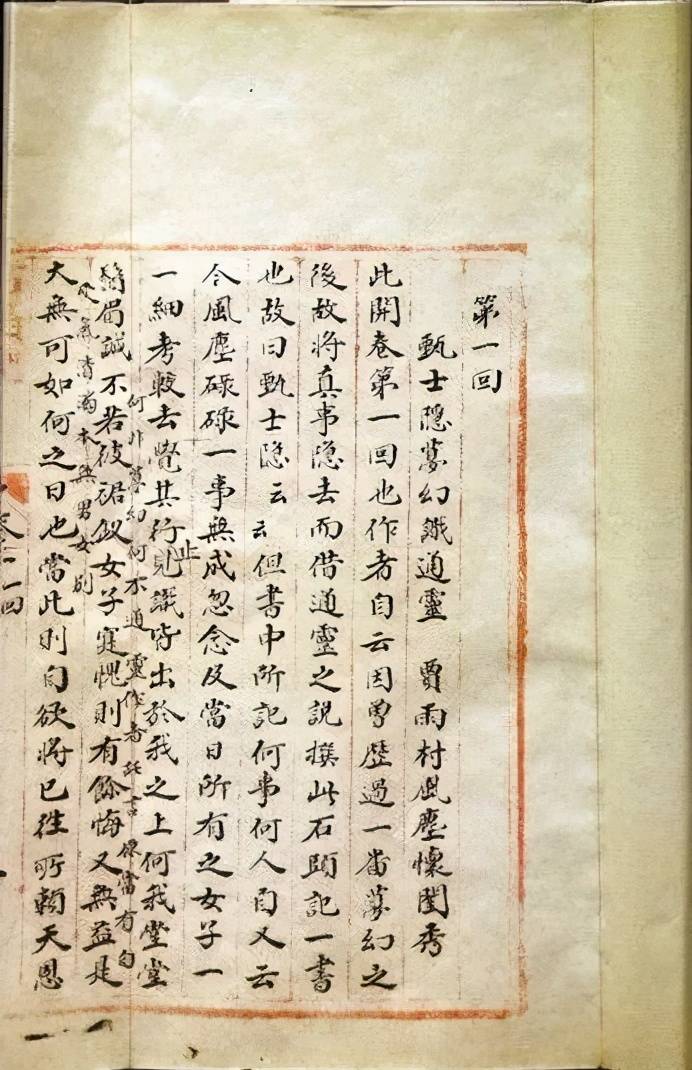 第一回
甄士隱夢幻識通靈　賈雨村風塵懷閨秀
此開卷第一回也作者自云因曾歷過一番夢幻之
後故將真事隱去而借通靈之說撰此石頭記一書
也故曰甄士隐云云但書中所記何事何人自又云
今風塵碌碌一事無成忽念及當日所有之女子一
一細考較去覺其行止見識皆出於我之上何我堂堂
何非夢幻何不通靈作者託言原當有自
鬚眉誠不若彼裙釵女子寔愧則有餘悔又無益是
受氣清濁本無男女別
大無可如何之日也當此則自欲將已往所賴天恩